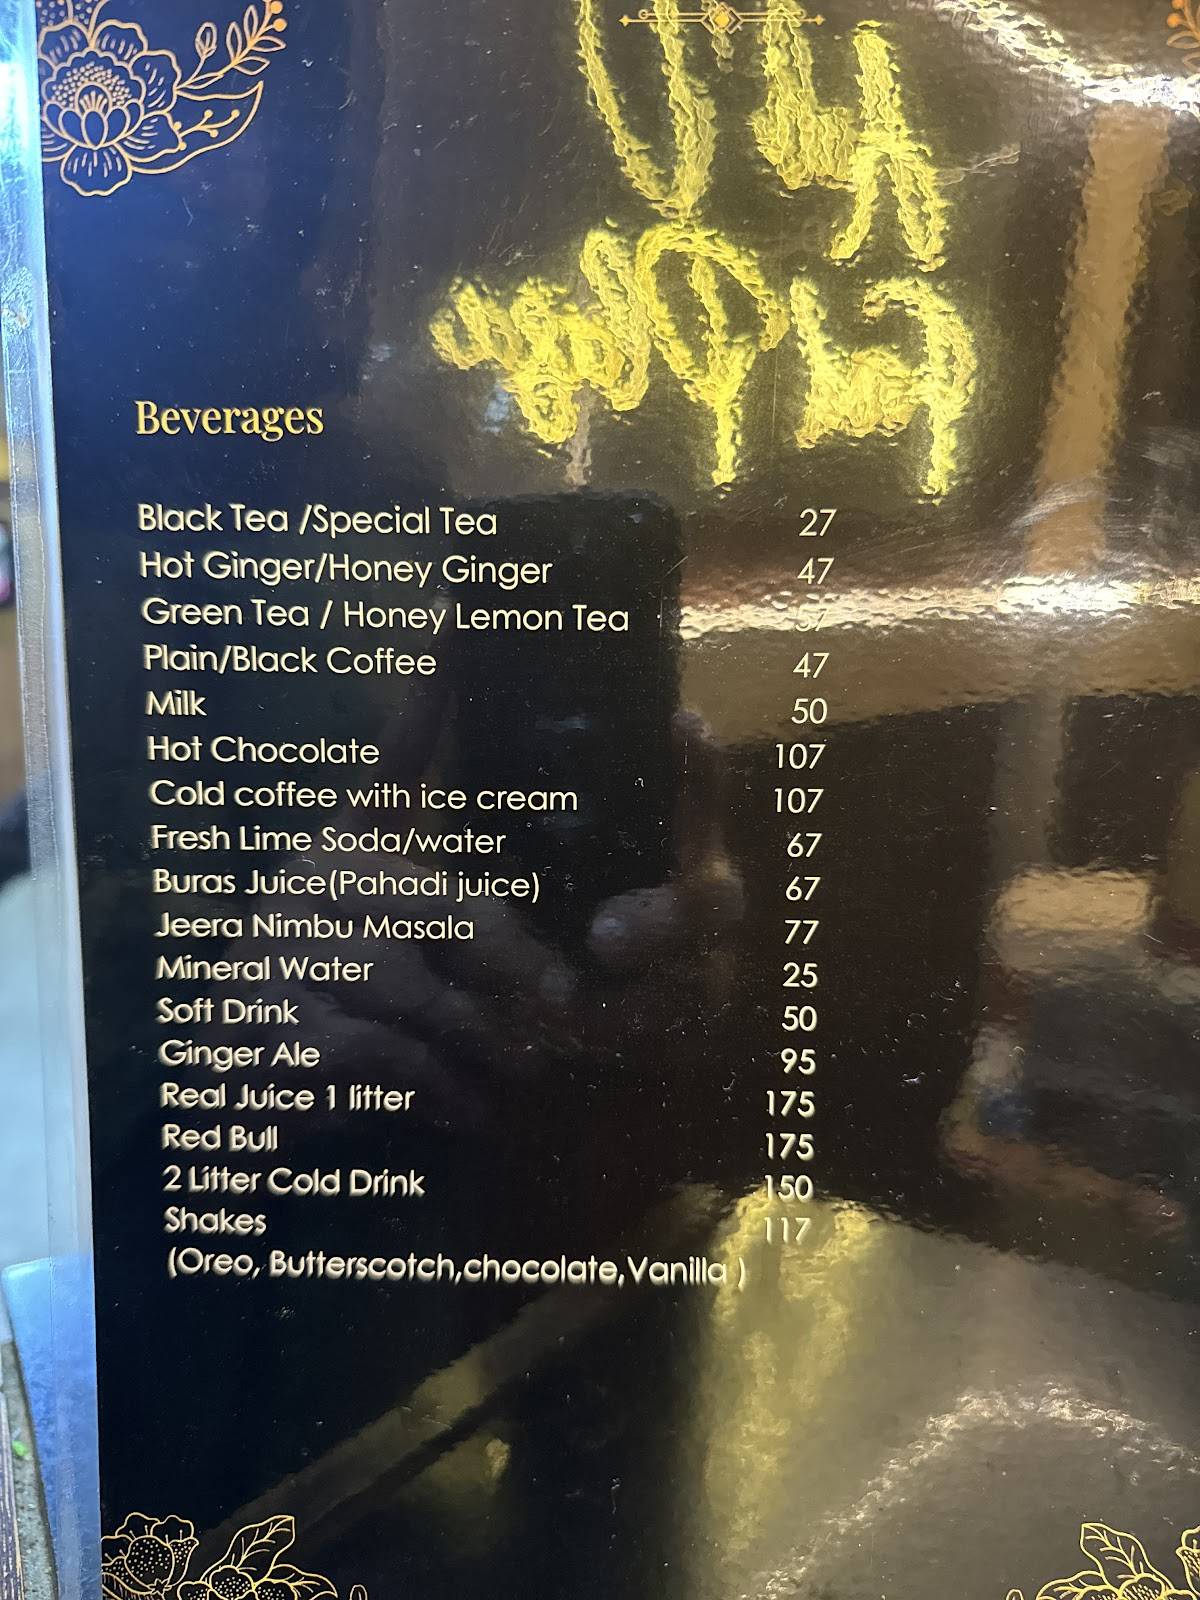 Beverages
Black Tea /Special Tea 27
Hot Ginger/Honey Ginger 47
Green Tea / Honey Lemon Tea 57
Plain/Black Coffee 47
Milk 50
Hot Chocolate 107
Cold coffee with ice cream 107
Fresh Lime Soda/water 67
Buras Juice(Pahadi juice) 67
Jeera Nimbu Masala 77
Mineral Water 25
Soft Drink 50
Ginger Ale 95
Real Juice 1 litter 175
Red Bull 175
2 Litter Cold Drink 150
Shakes 117
(Oreo, Butterscotch,chocolate,Vanilla )